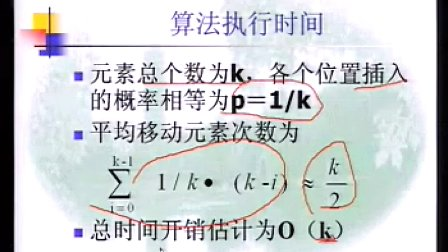 算法执行时间
元素总个数为k，各个位置插入
的概率相等为p＝1/k
平均移动元素次数为
k-1
∑ 1/k• (k-i) ≈ k/2
i=0
总时间开销估计为O（k）